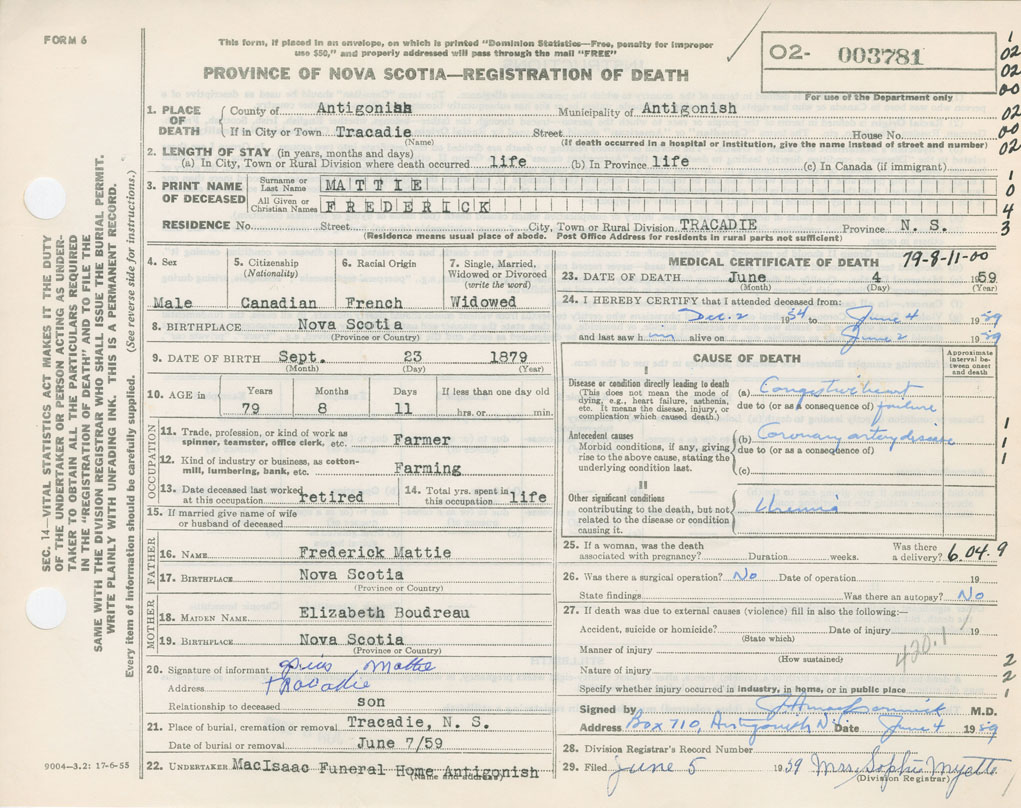 FORM 6
This form, if placed in an envelope, on which is printed "Dominion Statistics—Free, penalty for improper
use $50," and properly addressed will pass through the mail "FREE"
PROVINCE OF NOVA SCOTIA—REGISTRATION OF DEATH
02- 003781
For use of the Department only
1
02
02
00
02
00
02
1. PLACE OF DEATH
County of Antigonish Municipality of Antigonish
If in City or Town Tracadie Street House No.
(Name) (If death occurred in a hospital or institution, give the name instead of street and number)
2. LENGTH OF STAY (in years, months and days)
(a) In City, Town or Rural Division where death occurred life (b) In Province life (c) In Canada (if immigrant)
3. PRINT NAME OF DECEASED
Surname or Last Name MATTIE
All Given or Christian Names FREDERICK
1
0
4
3
RESIDENCE No. Street City, Town or Rural Division TRACADIE Province N. S.
(Residence means usual place of abode. Post Office Address for residents in rural parts not sufficient)
4. Sex
Male
5. Citizenship
(Nationality)
Canadian
6. Racial Origin
French
7. Single, Married,
Widowed or Divorced
(write the word)
Widowed
8. BIRTHPLACE Nova Scotia
(Province or Country)
9. DATE OF BIRTH Sept. 23 1879
(Month) (Day) (Year)
10. AGE in
Years Months Days If less than one day old
79 8 11 hrs. or min.
OCCUPATION
11. Trade, profession, or kind of work as
spinner, teamster, office clerk, etc. Farmer
12. Kind of industry or business, as cotton-
mill, lumbering, bank, etc. Farming
13. Date deceased last worked
at this occupation retired
14. Total yrs. spent in
this occupation life
15. If married give name of wife
or husband of deceased
FATHER
16. NAME Frederick Mattie
17. BIRTHPLACE Nova Scotia
(Province or Country)
MOTHER
18. MAIDEN NAME Elizabeth Boudreau
19. BIRTHPLACE Nova Scotia
(Province or Country)
20. Signature of informant Pius Mattie
Address Tracadie
Relationship to deceased son
21. Place of burial, cremation or removal Tracadie, N. S.
Date of burial or removal June 7/59
22. UNDERTAKER MacIsaac Funeral Home Antigonish
(Name and address)
9004—3.2: 17-6-55
SEC. 14—VITAL STATISTICS ACT MAKES IT THE DUTY
OF THE UNDERTAKER OR PERSON ACTING AS UNDER-
TAKER TO OBTAIN ALL THE PARTICULARS REQUIRED
IN THE "REGISTRATION OF DEATH" AND TO FILE THE
SAME WITH THE DIVISION REGISTRAR WHO SHALL ISSUE THE BURIAL PERMIT.
WRITE PLAINLY WITH UNFADING INK. THIS IS A PERMANENT RECORD.
Every item of information should be carefully supplied. (See reverse side for instructions.)
MEDICAL CERTIFICATE OF DEATH 79-8-11-00
23. DATE OF DEATH June 4 1959
(Month) (Day) (Year)
24. I HEREBY CERTIFY that I attended deceased from:
Dec. 2 1954 to June 4 1959
and last saw him alive on June 2 1959
CAUSE OF DEATH
Approximate
interval be-
tween onset
and death
I
Disease or condition directly leading to death
(This does not mean the mode of
dying, e.g., heart failure, asthenia,
etc. It means the disease, injury, or
complication which caused death.)
(a) Congestive heart
due to (or as a consequence of) failure
Antecedent causes
Morbid conditions, if any, giving
rise to the above cause, stating the
underlying condition last.
(b) Coronary artery disease
due to (or as a consequence of)
(c)
1
1
1
II
Other significant conditions
contributing to the death, but not
related to the disease or condition
causing it.
Uremia
25. If a woman, was the death
associated with pregnancy? Duration weeks. Was there
a delivery? 6.04.9
26. Was there a surgical operation? No Date of operation 19
State findings Was there an autopsy? No
27. If death was due to external causes (violence) fill in also the following:—
Accident, suicide or homicide? Date of injury 19
(State which)
Manner of injury
(How sustained)
420.1
Nature of injury
Specify whether injury occurred in industry, in home, or in public place
2
2
1
Signed by M.D.
Address Box 710, Antigonish N.S. Date June 4 1959
28. Division Registrar's Record Number
29. Filed June 5 1959 Mrs. Sophie Myette
(Division Registrar)